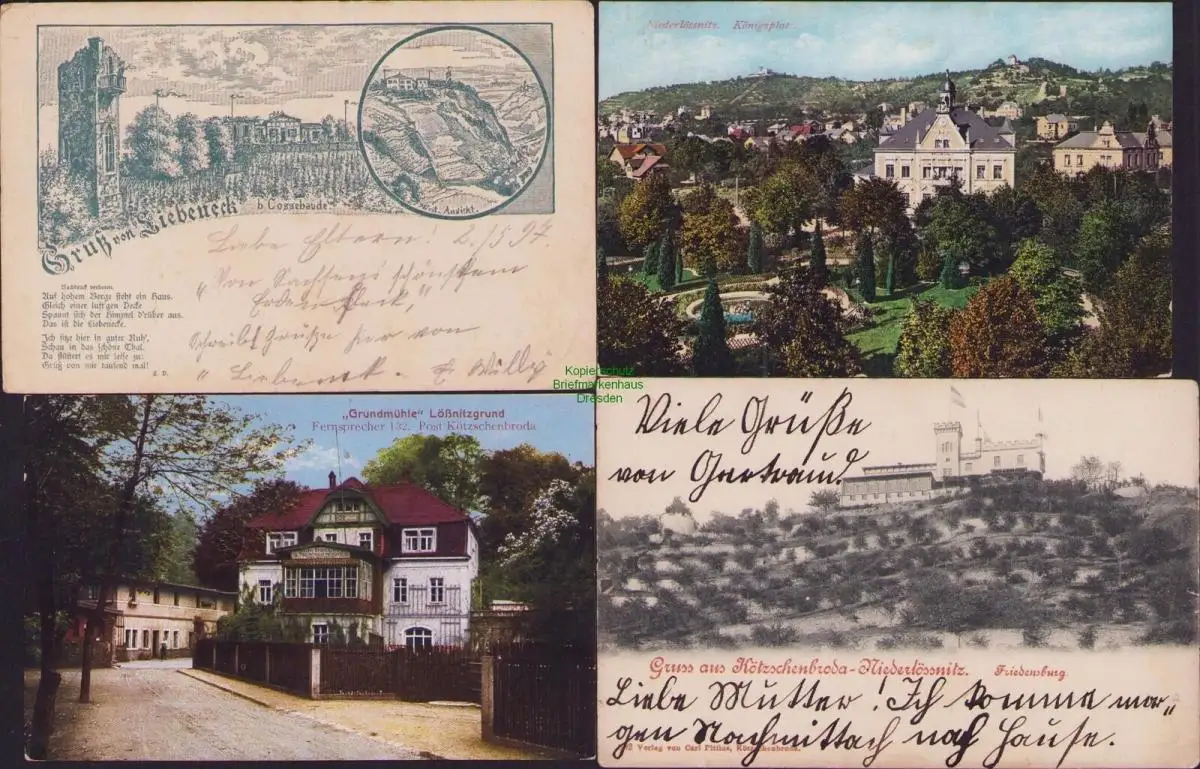 Gruß von Liebeneck b. Cossebaude
t. Ansicht.
Liebe Eltern! 2./5 97.
"Von Sachsens schönstem
Erdenfleck,"
schreibt Grüße hier von
" Liebeneck. E Willy
Nachdruck verboten.
Auf hohem Berge steht ein Haus.
Gleich einer luft'gen Decke
Spannt sich der Himmel d'rüber aus.
Das ist die Liebenecke.
Ich sitze hier in guter Ruh',
Schau in das schöne Thal.
Da flüstert es mir leise zu:
Grüß von mir tausend mal!
E. D.
Niederlössnitz. Königsplatz
Kopierschutz
Briefmarkenhaus
Dresden
„Grundmühle" Lößnitzgrund
Fernsprecher 132. Post Kötzschenbroda
Viele Grüße
von Gertraud.
Gruss aus Kötzschenbroda-Niederlössnitz. Friedensburg.
Liebe Mutter! Ich komme mor-
gen Nachmittach nach Hause.
Verlag von Carl Pittius, Kötzschenbroda.